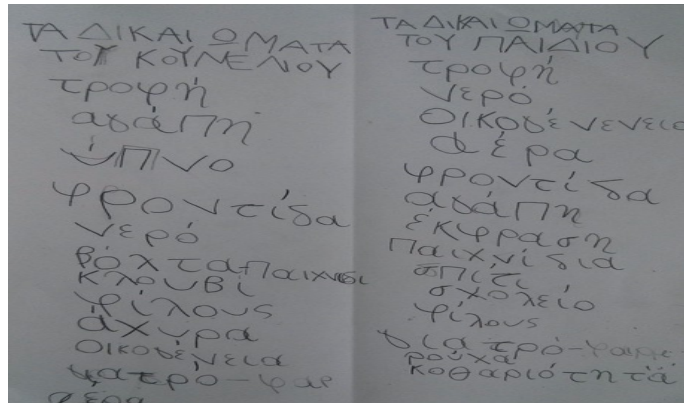 ΤΑ ΔΙΚΑΙΩΜΑΤΑ
ΤΟΥ ΚΟΥΝΕΛΙΟΥ
τροφή
αγάπη
ύπνο
φροντίδα
νερό
βόλτα-παιχνιδι
κλουβί
φίλους
άχυρα
οικογένεια
γιατρό-φαρ
αέρα
ΤΑ ΔΙΚΑΙΩΜΑΤΑ
ΤΟΥ ΠΑΙΔΙΟΥ
τροφή
νερό
οικογένενεια
αέρα
φροντίδα
αγάπη
έκφραση
παιχνίδια
σπίτι
σχολείο
φίλους
γιατρό-φαρμ
ρούχα
καθαριότητά